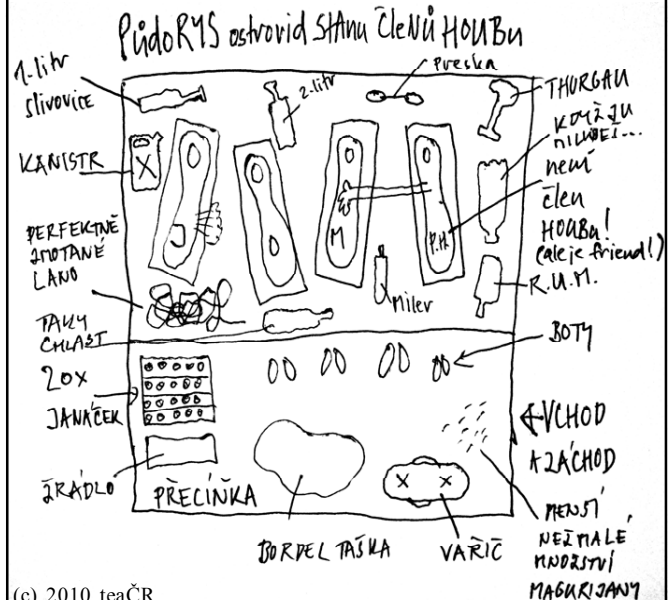 PŮdoRYS ostrovid StAnu ČleNŮ HOUBu
1-litr
slivovice
2-litr
Preska
THURGAU
KANISTR
KDYŽ JU
nemí
člen
HOUBu!
(ale je friend!)
PERFEKTNĚ
ZMOTANÉ
LANO
J
M
P.H.
Miler
R.U.M.
TAKY
CHLAST
BOTY
20x
JANÁČEK
VCHOD
A ZÁCHOD
ŽRÁDLO
PŘECÍŇKA
BORDEL TAŠKA
VAŘIČ
MENŠÍ
NEŽ MALÉ
MNOŽSTVÍ
MAGURIJÁNY
(c) 2010 teaČR